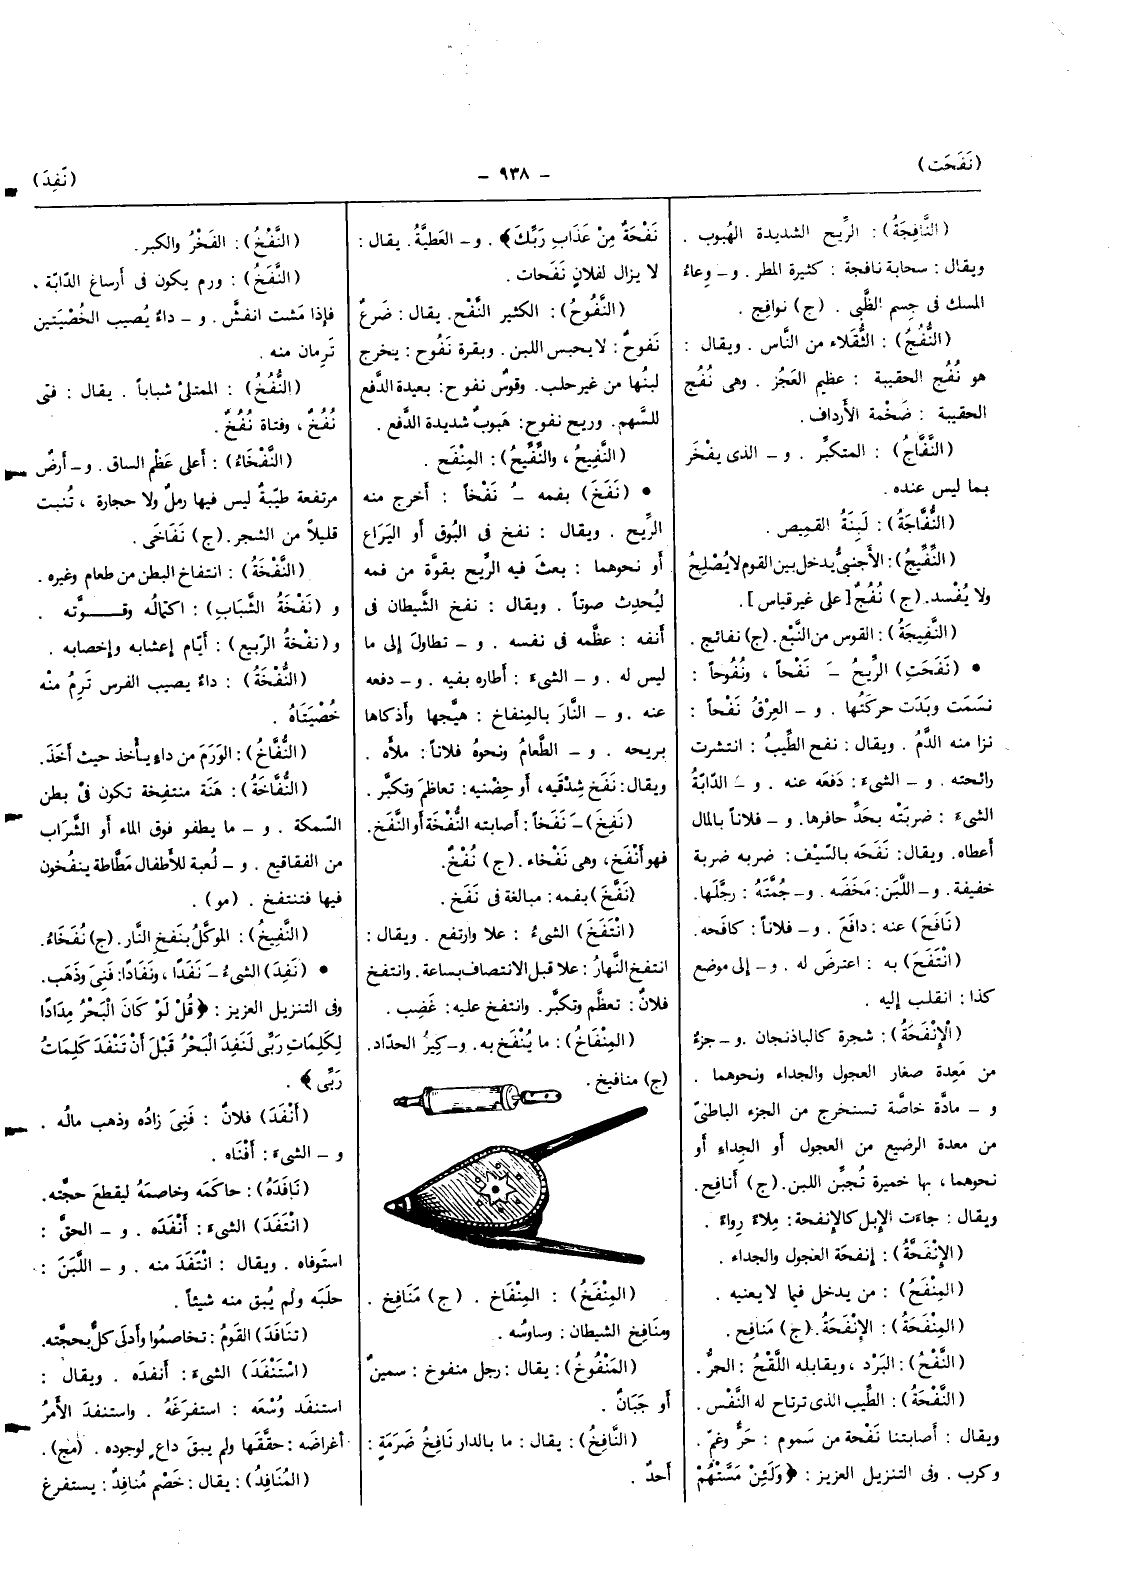 (نَفَحَت)
- ٩٣٨ -
(نَفِدَ)
(النَّافِجَةُ): الرِّيح الشديدة الهُبوب .
ويقال : سحابة نافجة : كثيرة المطر . و – وِعاءُ
المسك فى جِسم الظَّبى . (ج) نوافِج .
(النُّفُجُ) : الثُّقَلاء من النَّاس . ويقال :
هو نُفُج الحقيبة : عظيم العَجُز . وهى نُفُج
الحقيبة : ضَخْمة الأَرداف .
(النَّفَّاجُ) : المتكبِّر . و – الذى يفْخَر
بما ليس عنده .
(النُّفَّاجَةُ) : لَبِنَةُ القميص .
(النِّفِّيجُ): الأَجنبىُّ يدخل بين القوم لا يُصْلِحُ
ولا يُفْسد. (ج) نُفُجٌ [على غير قياس].
(النَّفِيجَةُ) : القوس من النَّبْع. (ج) نفائج .
• (نَفَحَتِ) الرِّيحُ ـَ نَفْحاً ، ونُفُوحاً :
نسَمَت وبَدَت حركتُها . و – العِرْقُ نَفْحاً :
نزا منه الدَّمُ . ويقال : نفح الطِّيبُ : انتشرت
رائحته . و – الشىءَ : دَفعَه عنه . و – الدّابّةُ
الشىءَ : ضربَتْه بحَدِّ حافرها. و – فلاناً بالمال
أعطاه. ويقال: نَفَحَه بالسّيْف: ضربه ضربة
خفيفة. و – اللَّبَن: مَخَضَه . و – جُمَّتَهُ : رجَّلَها.
(نَافَحَ) عنه : دافَعَ . و – فلاناً : كافَحه.
(انْتَفَحَ) به : اعترضَ له . و – إلى موضع
كذا : انقلب إليه .
(الْإِنْفَحَةُ) : شجرة كالباذنجان . و – جزءٌ
من مَعِدة صغار العجول والجداء ونحوهما .
و – مادَّة خاصَّة تستخرج من الجزء الباطنىّ
من معدة الرضيع من العجول أو الجِداءِ أو
نحوهما، بها خميرة تُجبِّن اللبن. (ج) أنافِح.
ويقال : جاءَت الإبل كالإنفحة: مِلاءً رِواءً .
(الإِنْفَحَّةُ) : إنفحَة العجول والجداء .
(المِنْفَحُ) : من يدخل فيما لا يعنيه .
(المِنْفَحَةُ) : الإنْفَحَةُ. (ج) مَنافِح.
(النَّفْحُ): البَرْد ، ويقابله اللَّفْحُ : الحرُّ .
(النَّفْحَةُ) : الطِّيب الذى ترتاح له النَّفْس .
ويقال : أصابتنا نَفْحة من سَموم : حَرٌّ وغمّ .
وكرب . وفى التنزيل العزيز : ﴿وَلَئِنْ مَسَّتْهُمْ
نَفْحَةٌ مِنْ عَذَابِ رَبِّكَ﴾ . و – العَطِيَّةُ. يقال :
لا يزال لفلانٍ نَفَحات .
(النَّفُوحُ) : الكثير النَّفْح. يقال : ضَرعٌ
نَفوحٌ : لا يحبس اللبن . وبقرة نَفُوح : يخرج
لبنُها من غير حلب. وقوسٌ نفوح: بعيدة الدَّفع
للسَّهم. وريح نفوح: هَبوبٌ شديدة الدفع .
(النَّفِيحُ ، والنِّفِّيحُ) : المِنْفَح .
• (نَفَخَ) بفمه ـُ نَفْخاً : أخرج منه
الرِّيح . ويقال : نفخ فى البُوق أو اليَرَاع
أو نحوهما : بعثَ فيه الرِّيح بقوَّة من فمه
ليُحدِث صوتاً . ويقال : نفخ الشَّيطان فى
أنفه : عظَّمه فى نفسه . و – تطاول إلى ما
ليس له . و – الشىءَ : أطاره بفيه . و – دفعه
عنه . و – النَّارَ بالمِنفاخ : هيَّجها وأذكاها
بريحه . و – الطَّعامُ ونحوهُ فلاناً: ملأه .
ويقال: نَفَخ شِدْقَيه، أو حِضْنيه: تعاظمَ وتكبَّر .
(نَفِخَ) ـَ نَفَخاً: أصابته النُّفْخَة أو النَّفَخ.
فهو أنْفَخ، وهى نَفْخاء . (ج) نُفْخٌ.
(نَفَّخَ) بفمه: مبالغة فى نَفَخ .
(انْتَفَخَ) الشىءُ : علا وارتفع . ويقال :
انتفخ النَّهارُ : علا قبل الانتصاف بساعة. وانتفخ
فلانٌ : تعظَّم وتكبَّر. وانتفخ عليه: غَضِب .
(المِنْفَاخُ) : ما يُنْفَخ به. و – كِيرُ الحدّاد.
(ج) منافيخ .
(المِنْفَخُ) : المِنْفَاخ . (ج) مَنَافِخ .
ومنَافِخ الشيطان : وساوِسُه .
(المَنْفُوخُ) : يقال : رجل منفوخ : سمينٌ
أو جَبَانٌ .
(النَّافِخُ) : يقال : ما بالدار نَافِخُ ضَرَمَةٍ :
أحدٌ .
(النَّفْخُ) : الفَخْرُ والكبر.
(النَّفَخُ) : ورم يكون فى أرساغ الدّابّة ،
فإذا مَشت انفشَّ . و – داءٌ يُصيب الخُصْيَتين
تَرِمان منه .
(النُّفُخُ) : الممتلئُ شباباً . يقال : فتى
نُفُخٌ ، وفتاة نُفُخٌ .
(النَّفْخَاءُ) : أعلى عَظْم الساق. و – أرضٌ
مرتفعة طيّبةٌ ليس فيها رملٌ ولا حجارة ، تُنبت
قليلاً من الشجر. (ج) نَفَاخَى .
(النَّفْخَةُ) : انتفاخ البطن من طعام وغيره .
و (نَفْخَةُ الشَّبَابِ) : اكتمالُه وقـــوَّته .
و (نفْخةُ الرّبيع) : أيّام إعشابه وإخصابه .
(النُّفْخَةُ) : داءٌ يصيب الفرس تَرِمُ منه
خُصْيَتَاهُ .
(النُّفَّاخُ) : الوَرَمَ من داءٍ يأخذ حيث أخَذَ.
(النُّفَّاخَةُ) : هَنَة منتفِخة تكون فى بطن
السّمكة . و – ما يطفو فوق الماء أو الشَّراب
من الفقاقيع . و – لُعبة للأطفال مَطَّاطة ينفُخون
فيها فتنتفخ . (مو) .
(النَّفِيخُ) : الموكَّلُ بنَفخ النَّار. (ج) نُفَخَاءُ.
• (نَفِدَ) الشىءُ ـَ نَفَدًا ، ونَفَادًا: فَنِىَ وذَهَب.
وفى التنزيل العزيز : ﴿قُلْ لَوْ كَانَ الْبَحْرُ مِدَادًا
لِكَلِمَاتِ رَبِّى لَنَفِدَ الْبَحْرُ قَبْلَ أَنْ تَنْفَدَ كَلِمَاتُ
رَبِّى﴾ .
(أَنْفَدَ) فلانٌ : فَنِىَ زادُه وذهب مالُه .
و – الشىءَ : أفْنَاه .
(نَافَدَهُ) : حاكَمَه وخاصمَهُ ليقطعَ حجَّته.
(انْتَفَدَ) الشىءَ : أنْفَدَه . و – الحقَّ :
استوفاه . ويقال : انْتَفَدَ منه . و – اللَّبَنَ :
حلبَه ولم يُبق منه شيئاً .
(تنَافَدَ) القَومُ : تخاصمُوا وأدلَى كلٌّ بحجَّته.
(اسْتَنْفَدَ) الشىءَ : أنفدَه . ويقال :
استنفَد وُسْعَه : استفرغَهُ . واستنفدَ الأمرُ
أغراضَه : حقَّقَها ولم يبقَ داعٍ لوجوده . (مج).
(المُنَافِدُ) : يقال : خَصْم مُنافِدٌ : يستفرغ